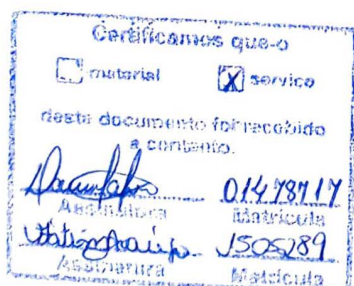 Certificamos que o
material X serviço
deste documento foi recebido
a contento.
01478717
Assinatura Matrícula
1505289
Assinatura Matrícula